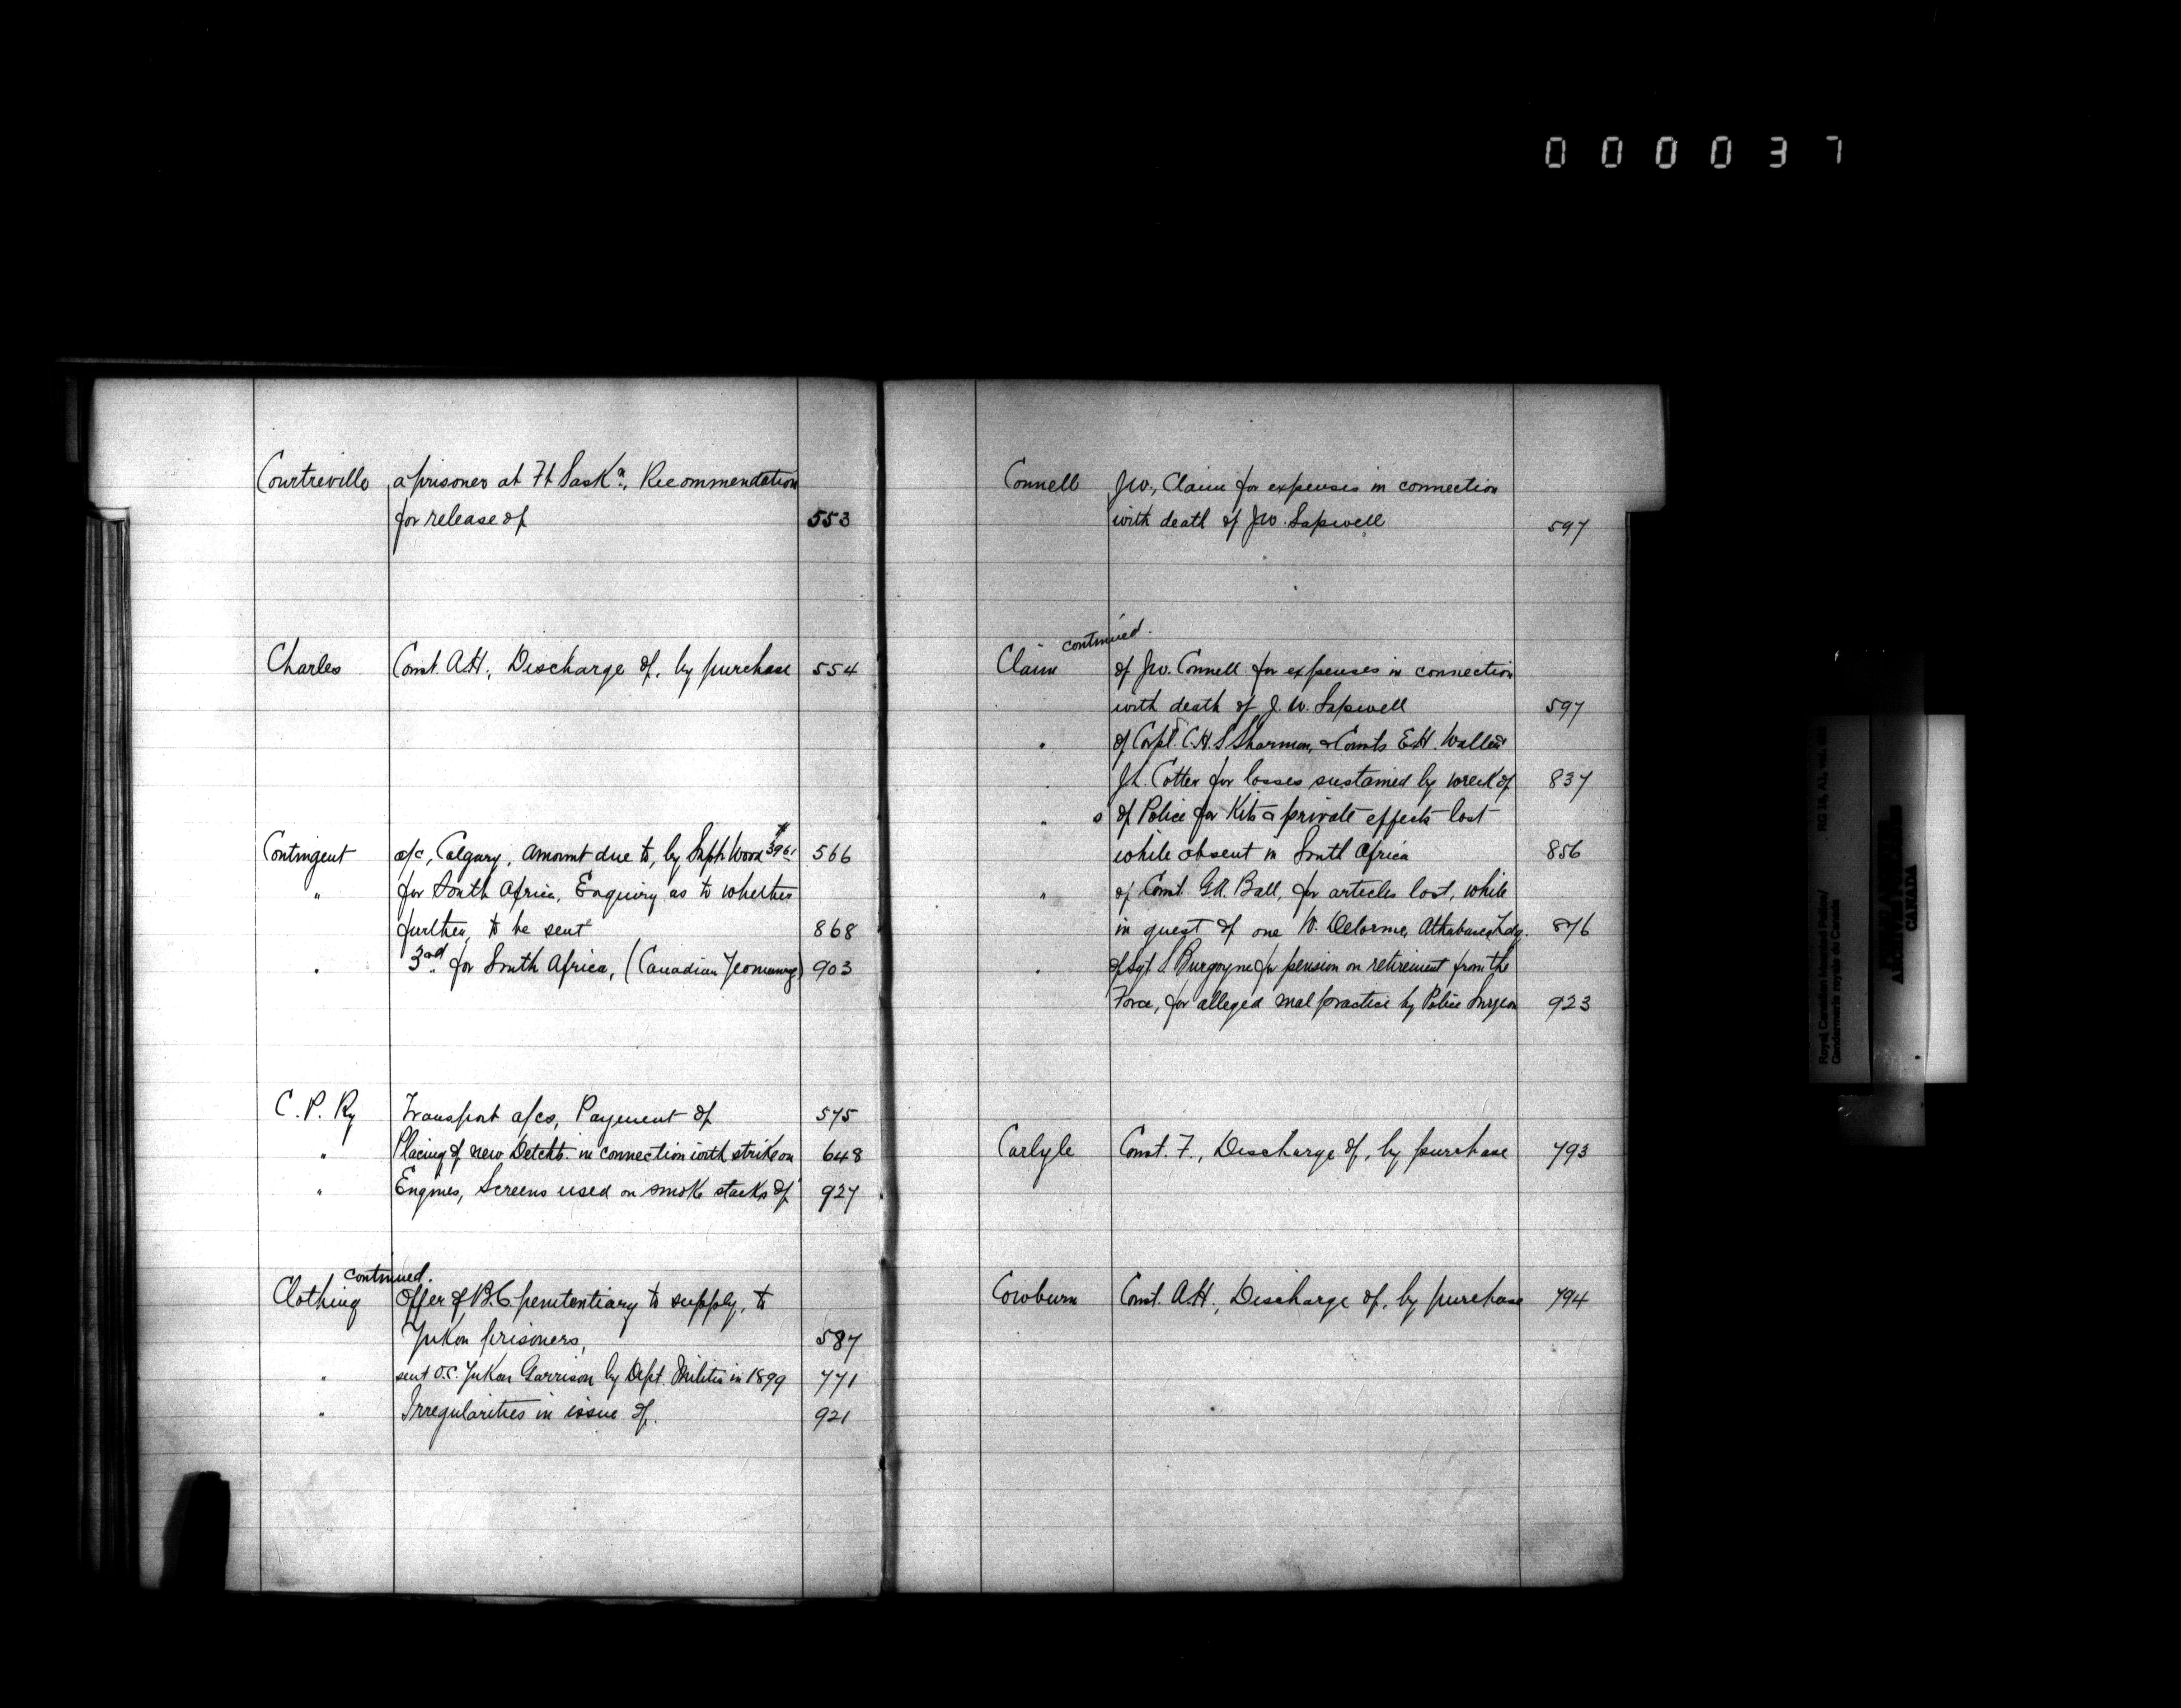 000037
Courtreville a prisoner at Ft Sask.n, Recommendation
for release of 553
Charles Const. A.H., Discharge of, by purchase 554
Contingent a/c, Calgary, amount due to, by Supt. Wood 566
" for South Africa, Enquiry as to whether
further, to be sent 868
" 3rd for South Africa, (Canadian Yeomanry) 903
C. P. Ry Transport a/cs, Payment of 575
" Placing of new Detchts. in connection with strike on 648
" Engines, Screens used on smoke stacks of 927
continued.
Clothing Offer of B.C. penitentiary to supply, to
Yukon prisoners, 587
" sent O.C. Yukon Garrison by Dept. Militia in 1899 771
" Irregularities in issue of. 921
Connell J.W., Claim for expenses in connection
with death of J.W. Sapwell 597
continued.
Claim of J.W. Connell for expenses in connection
with death of J.W. Sapwell 597
" of Corpl. C.H.S Sharman, & Consts E.H. Waller &
J.L. Cotter for losses sustained by wreck of 837
" s of Police for Kits & private effects lost
while absent in South Africa 856
" of Const. G.A. Ball, for articles lost, while
in quest of one W. Delorme, Athabasca Ldg. 876
" of Sgt S Burgoyne for pension on retirement from the
Force, for alleged mal practice by Police Surgeon 923
Carlyle Const. F., Discharge of, by purchase 793
Cowburn Const. A.H., Discharge of, by purchase 794
Royal Canadian Mounted Police/
Gendarmerie royale du Canada
CANADA